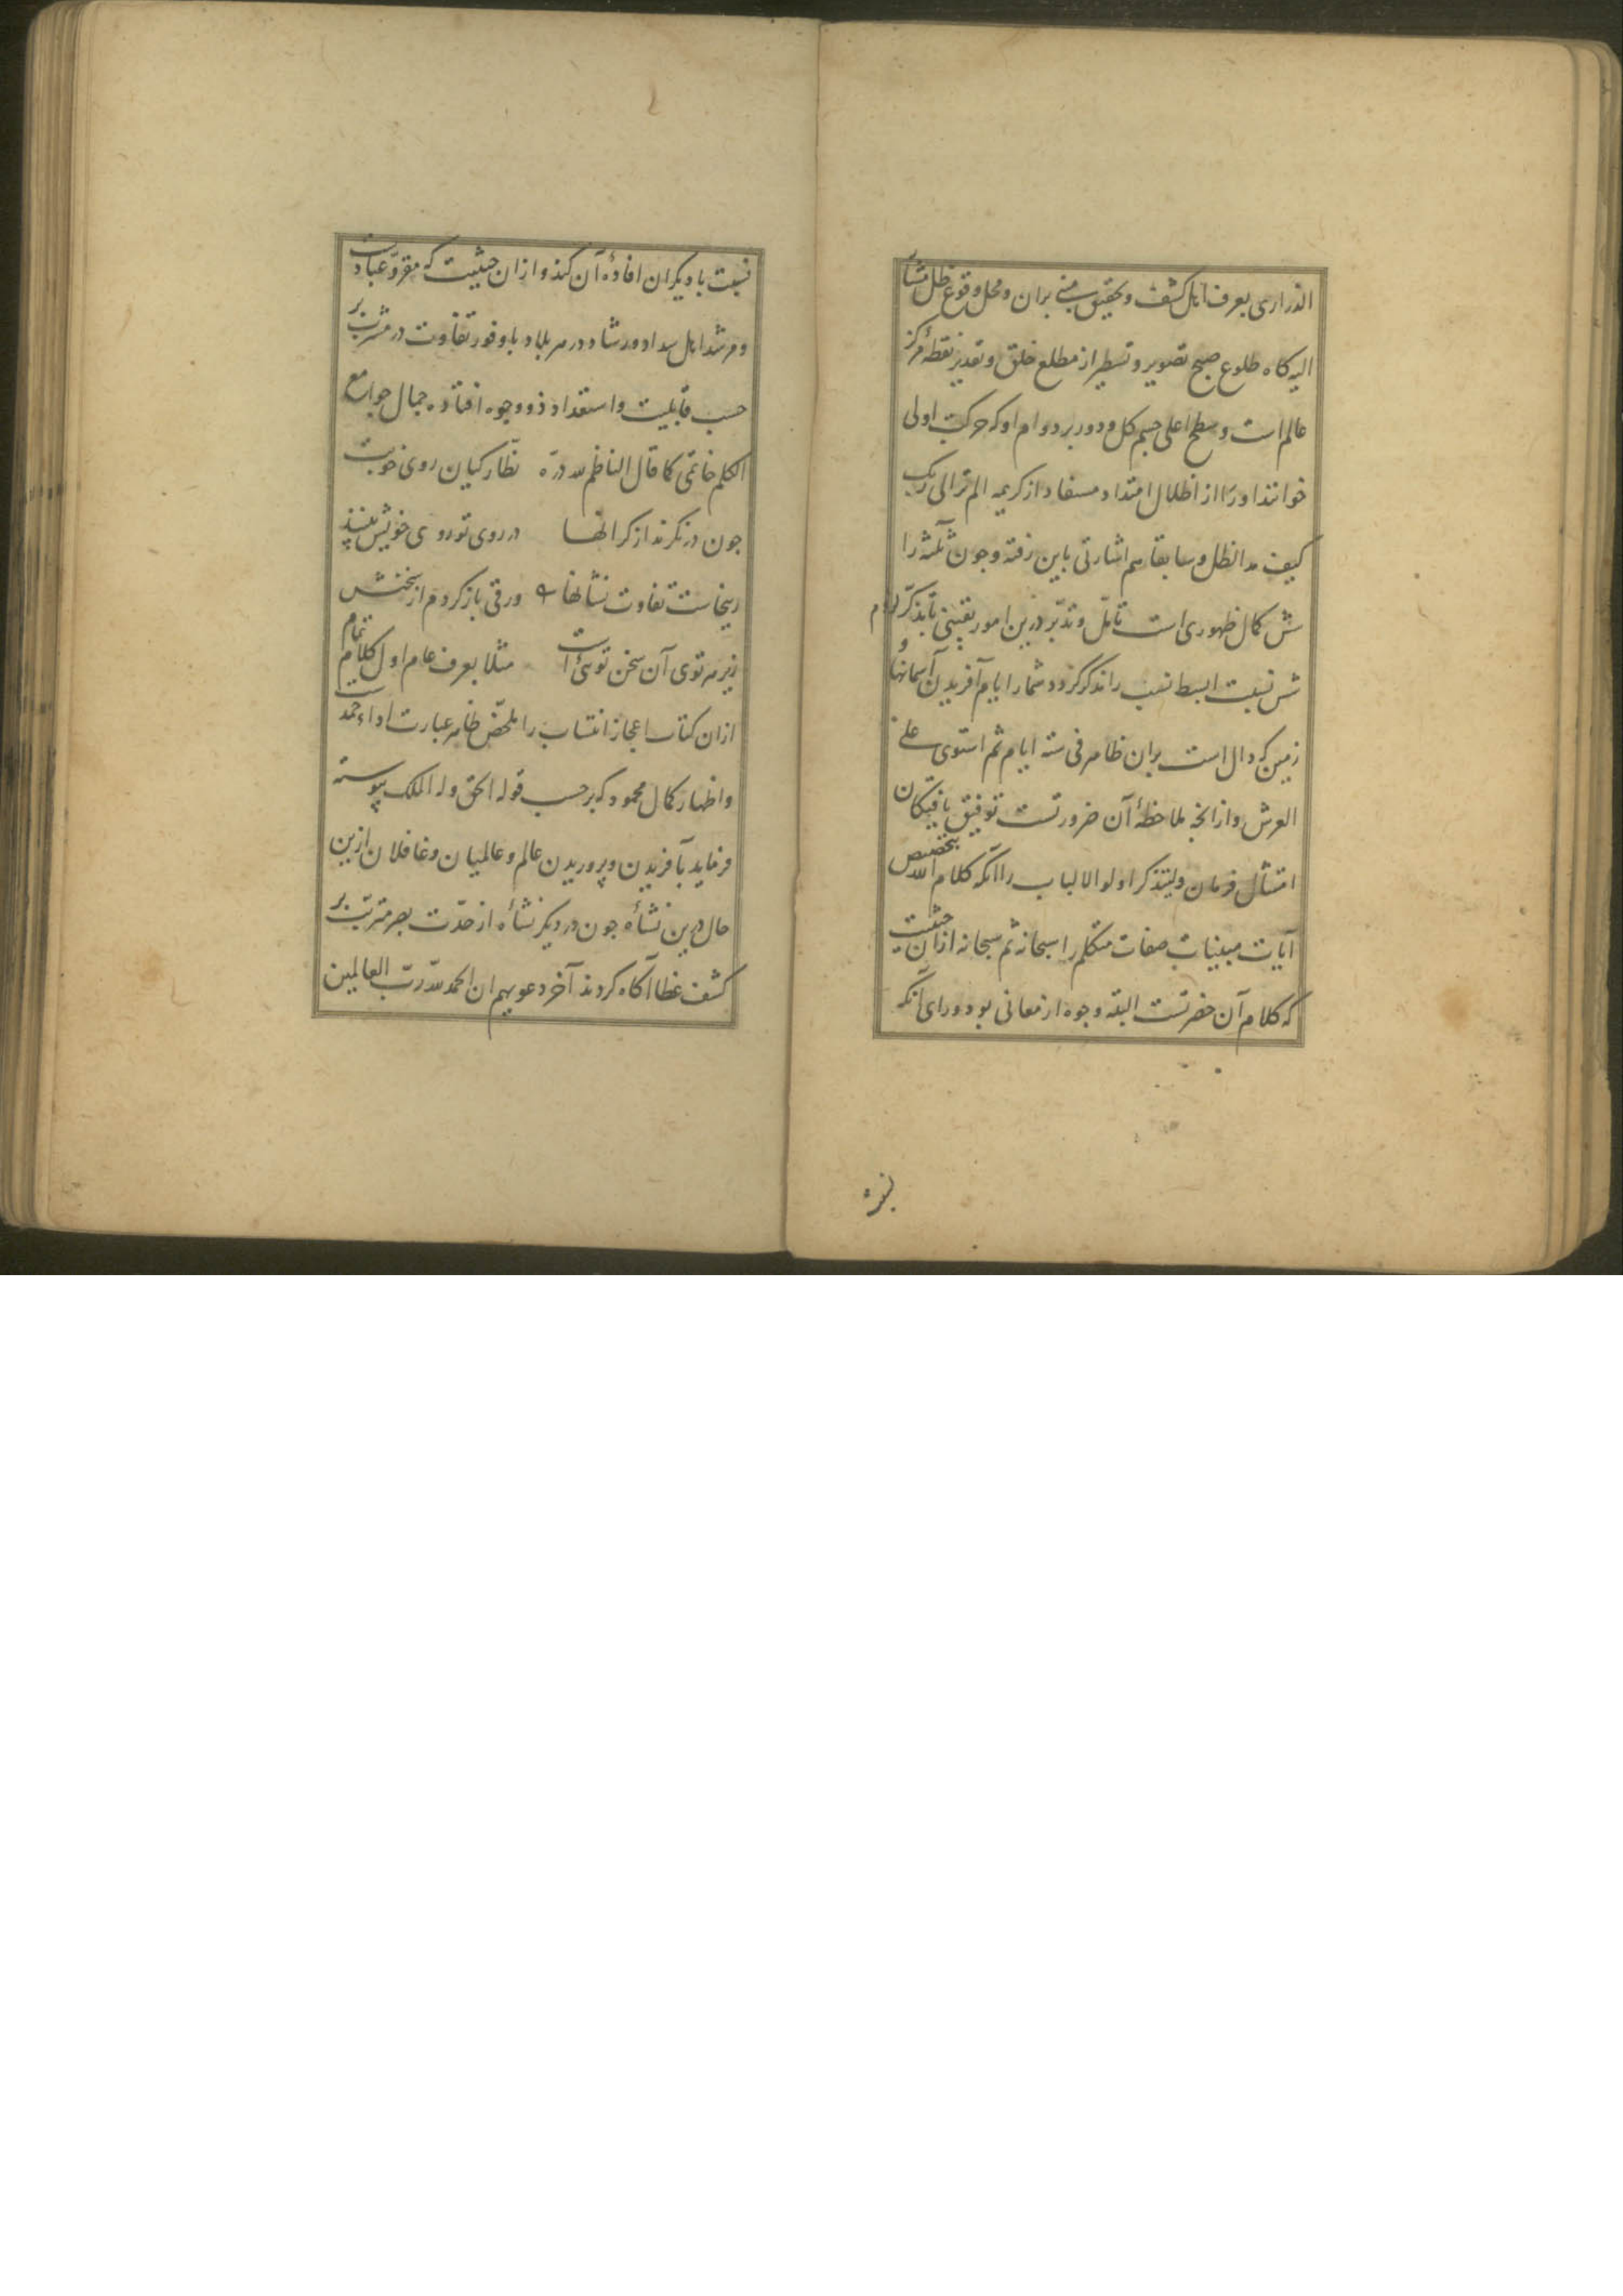 الذراری بعرف اهل کشف و تحقیق مبنی بران و محل وقوع ظل مشار
الیه کاه طلوع صبح تصویر و تسطیر از مطلع خلق و تقدیر نقطهٔ مرکز
عالم است و سطح اعلی جسم کل و دور بر دوام او که حرکت اولی
خوانند اورا از اظلال امتداد مستفاد از کریمه الم تر الی ربک
کیف مد الظل و سابقا هم اشارتی باین رفته و جون ثلثه را
شش کمال ظهوری است تامل و تدبر درین امور یقینی تا بتذکر لزوم
شش نسبت ابسط نسب را تذکر کردد شمار ایام آفریدن آسمانها و
زمین که دال است بران ظاهر فی ستة ایام ثم استوی علی
العرش و از انجه ملاحظهٔ آن ضرورتست توفیق یافتکان
امتثال فرمان ولیتذکر اولو الالباب را آنکه کلام الله بتخصیص
آیات مبینات صفات متکلم را سبحانه ثم سبحانه ازان حیثیت
که کلام آن حضرتست البته وجوه از معانی بود ورای آنکه
نسبت
نسبت با دیکران افادهٔ آن کند و ازان حیثیت که مقرو عبادست
و مرشد اهل سداد و رشاد در هر بلاد با وفور تفاوت در مشرب بر
حسب قابلیت و استعداد ذو وجوه افتاده جمال جوامع
الکلم خاتمی کما قال الناظم لله دره نظارکیان روی خوبت
جون درنکرند از کرانها در روی تو روی خویش بینند
زینجاست تفاوت نشانها ورقی باز کردم از سخنش
زیر هر توی آن سخن توئی است مثلا بعرف عام اول کلام تمام
ازان کتاب اعجاز انتساب را ملخص ظاهر عبارت اداء حمدست
و اظهار کمال محمود که برحسب قوله الحق وله الملک پیوسته
فرماید بآفریدن و پروریدن عالم و عالمیان و غافلان ازین
حال درین نشأه جون در دیکر نشأه از حدت بصر مترتب بر
کشف غطا آکاه کردند آخر دعویهم ان الحمد لله رب العالمین